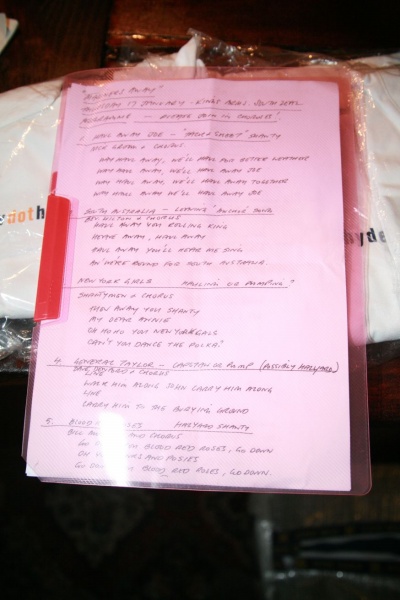 AWAY"
SATURDAY 17 JANUARY - KINGS ARMS, SOUTH
- PLEASE JOIN IN CHORUSES!
1 HAUL AWAY JOE - SHANTY
+ CHORUS.
WAY HAUL AWAY, WE'LL HAUL FOR BETTER WEATHER
WAY HAUL AWAY, WE'LL HAUL AWAY JOE
WAY HAUL AWAY, WE'LL HAUL AWAY TOGETHER
WAY HAUL AWAY WE'LL HAUL AWAY JOE
SOUTH AUSTRALIA - SONG
+ CHORUS
HAUL AWAY YOU ROLLING KING
HEAVE AWAY, HAUL AWAY
HAUL AWAY YOU'LL HEAR ME SING
WE'RE BOUND FOR SOUTH AUSTRALIA.
NEW YORK GIRLS HAULING OR PUMPING?
SHANTYMEN + CHORUS
THEN AWAY YOU SHANTY
MY DEAR ANNIE
OH HO HO YOU NEW YORK GALS
CAN'T YOU DANCE THE POLKA?
4. GENERAL TAYLOR - CAPSTAN OR PUMP (POSSIBLY HALYARD)
DAVE + CHORUS
LINE
WALK HIM ALONG JOHN CARRY HIM ALONG
LINE
CARRY HIM TO THE BURYING GROUND
5. BLOOD ROSES HALYARD SHANTY
BILL AND CHORUS
GO BLOOD RED ROSES, GO DOWN
OH AND POSIES
GO DOWN BLOOD RED ROSES, GO DOWN.
dot h
yde